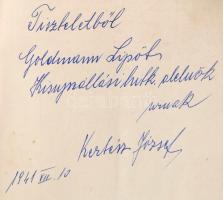 Tiszteletből
Goldmann Lipót
Kisujszállási hitk. alelnök
urnak
Kertész József
1941 VII. 10